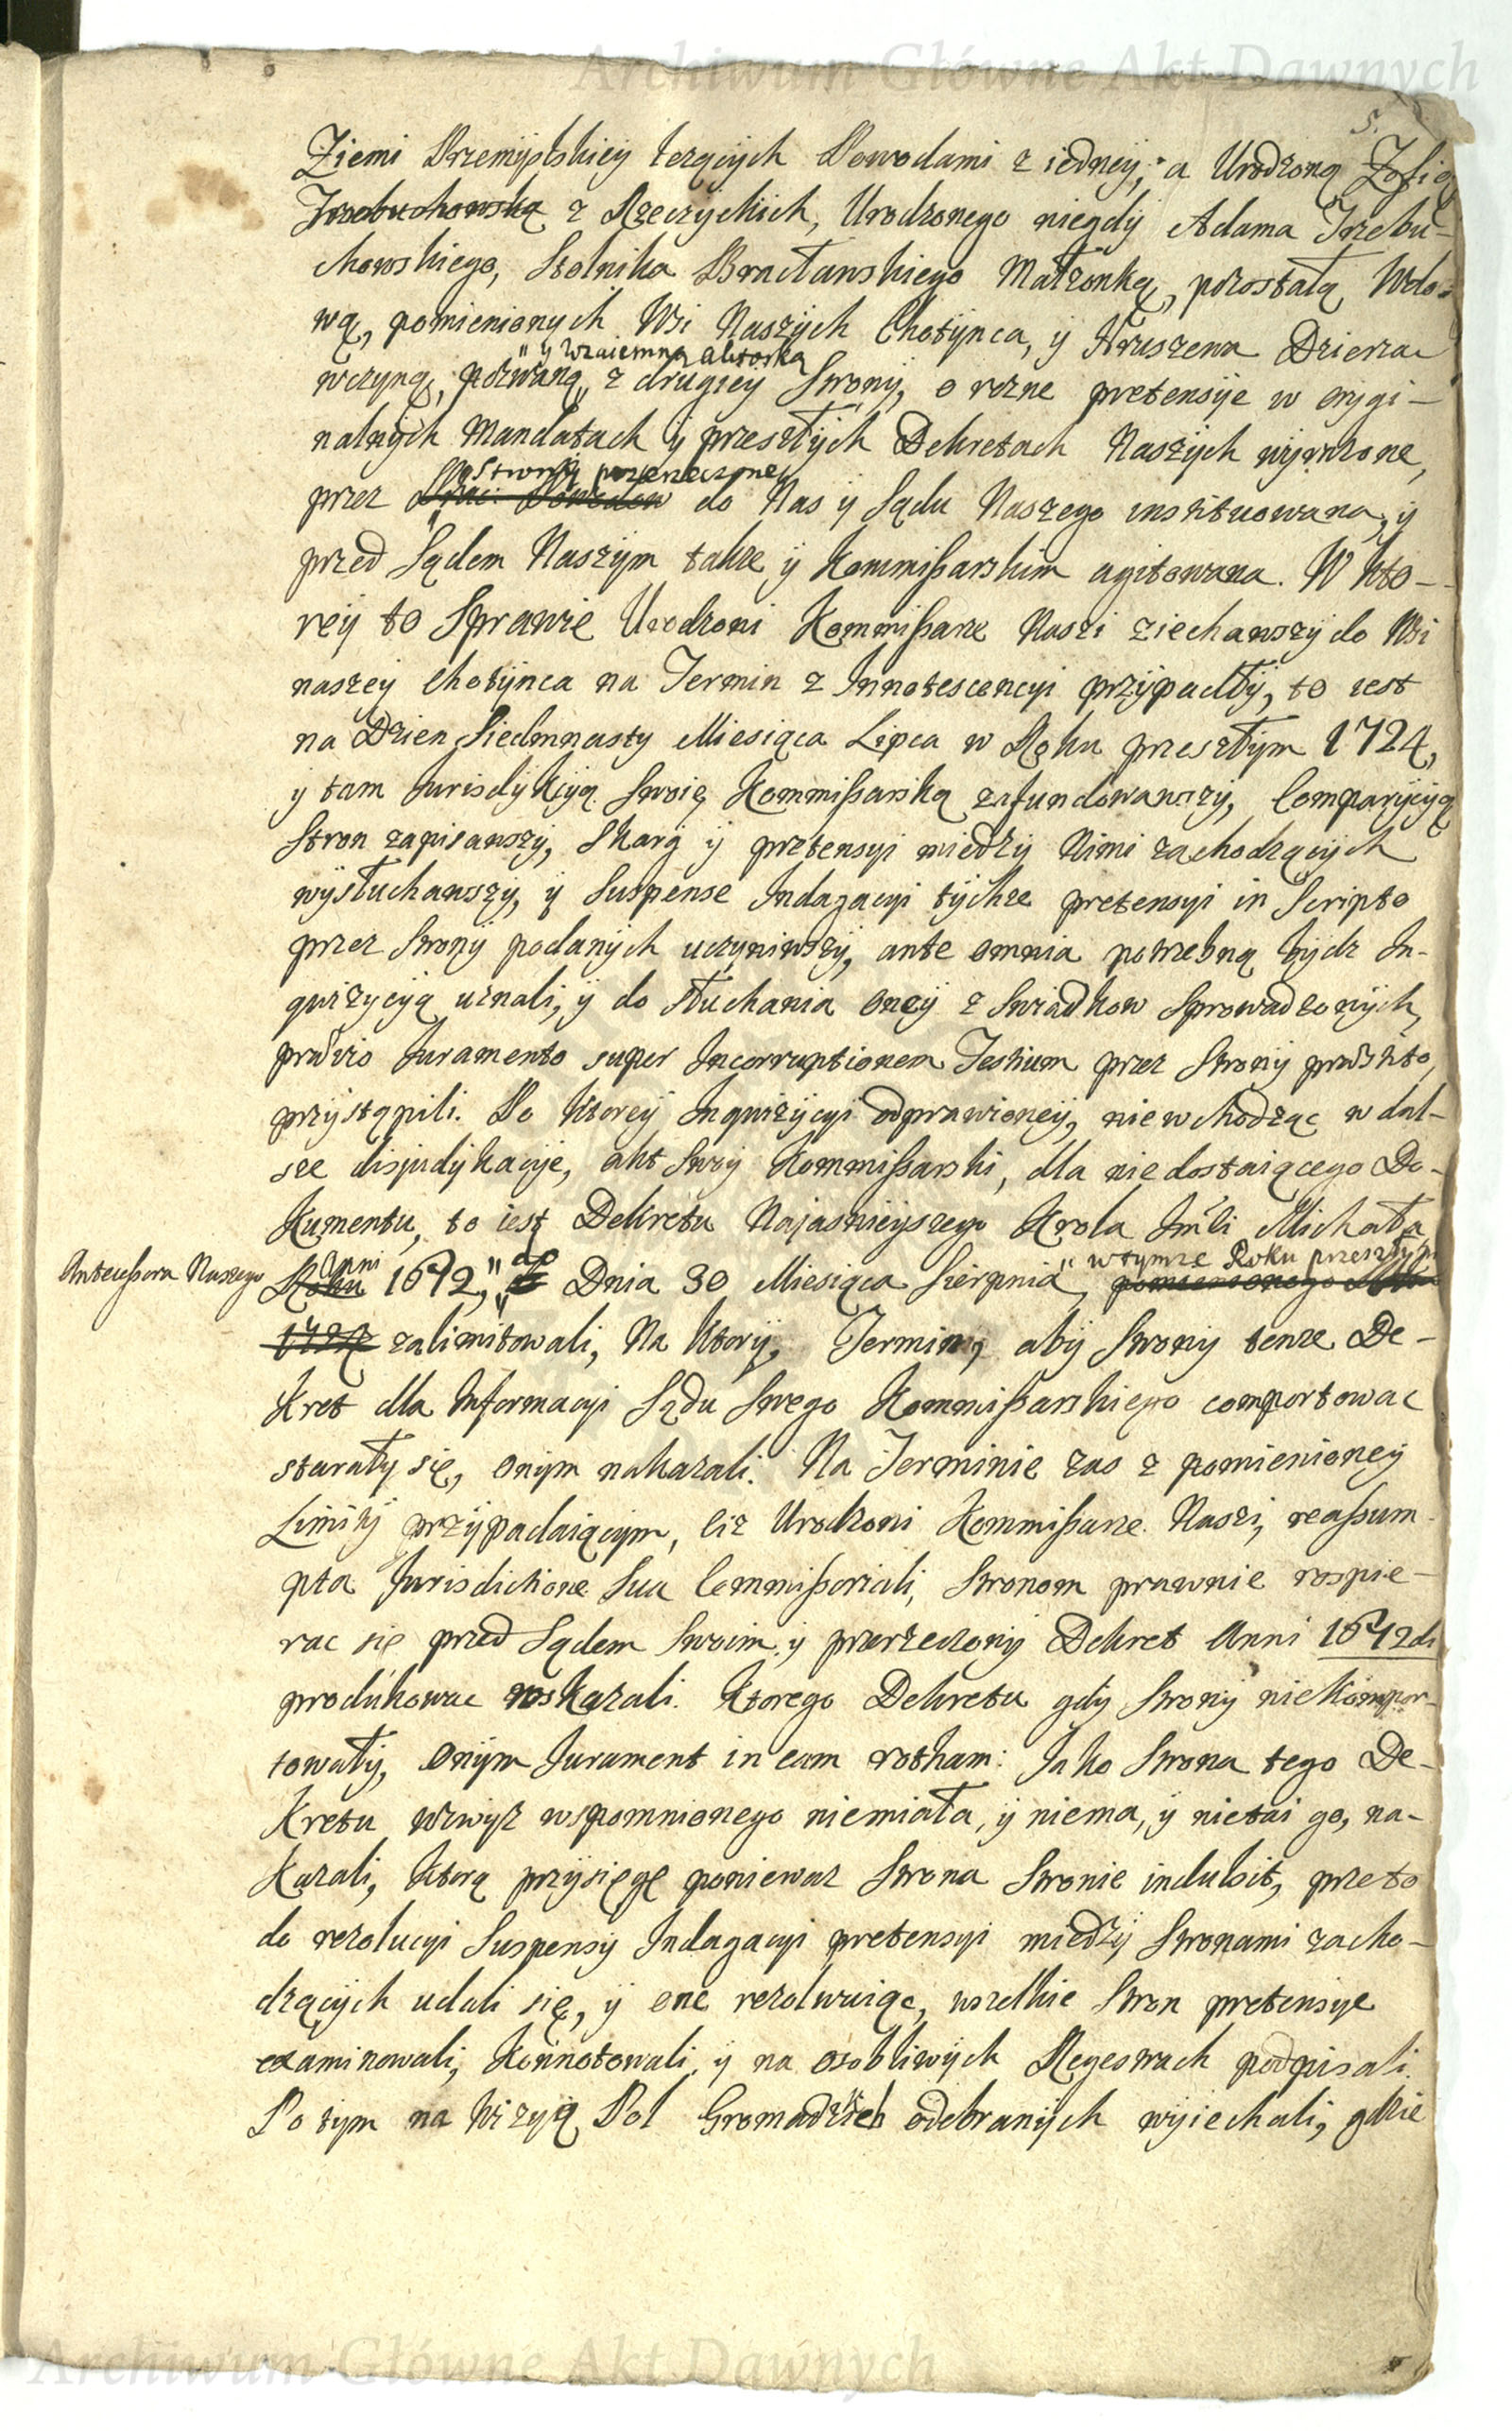 Archiwum Główne Akt Dawnych
5.
Ziemi Przemyslskiey lezących Powodami z iedney, a Urodzoną Zofią
Trzebuchowską z Rzeczyckich, Urodzonego niegdy Adama Trzebu-
chowskiego, Stolnika Bracławskiego Małzonką, pozostałą Wdo-
wą, pomienionych Wsi Naszych Chotynca, y Hruszewa Dzierza
" y Wzaiemną aktorką
wczyną, pozwaną " z drugiey Strony, o rozne pretensye w orygi-
nalnych Mandatach y przeszłych Dekretach Naszych wyrazone,
Strony przerzeczone
przez do Nas y Sądu Naszego instituowana, y
przed Sądem Naszym takze y Kommißarskim agitowana. W kto-
rey to Sprawie Urodzoni Kommißarze Naszi ziechawszy do Wsi
naszey Chotynca na Termin z Innotescencyi przypadły, to iest
na Dzien Siedmnasty Miesiąca Lipca w Roku przeszłym 1724,
y tam Jurisdykcyą Swoię Kommißarską zafundowawszy, Comparycyą
Stron zapisawszy, Skarg y pretensyi między Nimi zachodzących
wysłuchawszy, y Suspense Indagacyi tychze pretensyi in Scripto
przez Strony podanych uczyniwszy, ante omnia potrzebną bydz In-
quizycyą uznali, y do słuchania oney z Swiadkow Sprowadzonych,
prævio Juramento super Incorruptionem Testium przez Strony præstito,
przystąpili. Po ktorey Inquizycyi odprawioney, niewchodząc w dal-
sze disjudykacyje, akt Swoy Kommißarski, dla niedostaiącego Do-
kumentu, to iest Dekretu Najasnieyszego Krola Jmśći Michała
Antecessora Naszego Anni do " w tymze Roku przeszłym
Roku 1672, " Dnia 30 Miesiąca Sierpnia, pomienionego Roku
1724 zalimitowali, Na ktory, Termin, aby Strony tenze De-
kret dla Informacyi Sądu Swego Kommißarskiego comportowac
starały się, onym nakazali. Na Terminie zas z pomienioney
Limity przypadaiącym, ciz Urodzoni Kommißarze Naszi, reaßum-
pta Jurisdictione Sua Commißoriali, Stronom prawnie rospie-
rac się przed Sądem Swoim, y przerzeczony Dekret Anni 1672di
produkowac roskazali. Ktorego Dekretu gdy Strony niekompor-
towały, Onym Jurament in eam rotham: Jako Strona tego De-
kretu wzwyz wspomnionego niemiała, y niema, y nietai go, na-
kazali, ktorą przysięgę poniewaz Strona Stronie indulsit, przeto
do rezolucyi Suspensy Indagacyi pretensyi między Stronami zacho-
dzących udali się, y one rezolwuiąc, wszelkie Stron pretensye
examinowali, Konnotowali, y na osobliwych Regestrach podpisali.
Po tym na Wizyą Pol Gromadzie odebranych wyiechali, gdzie
Archiwum Główne Akt Dawnych